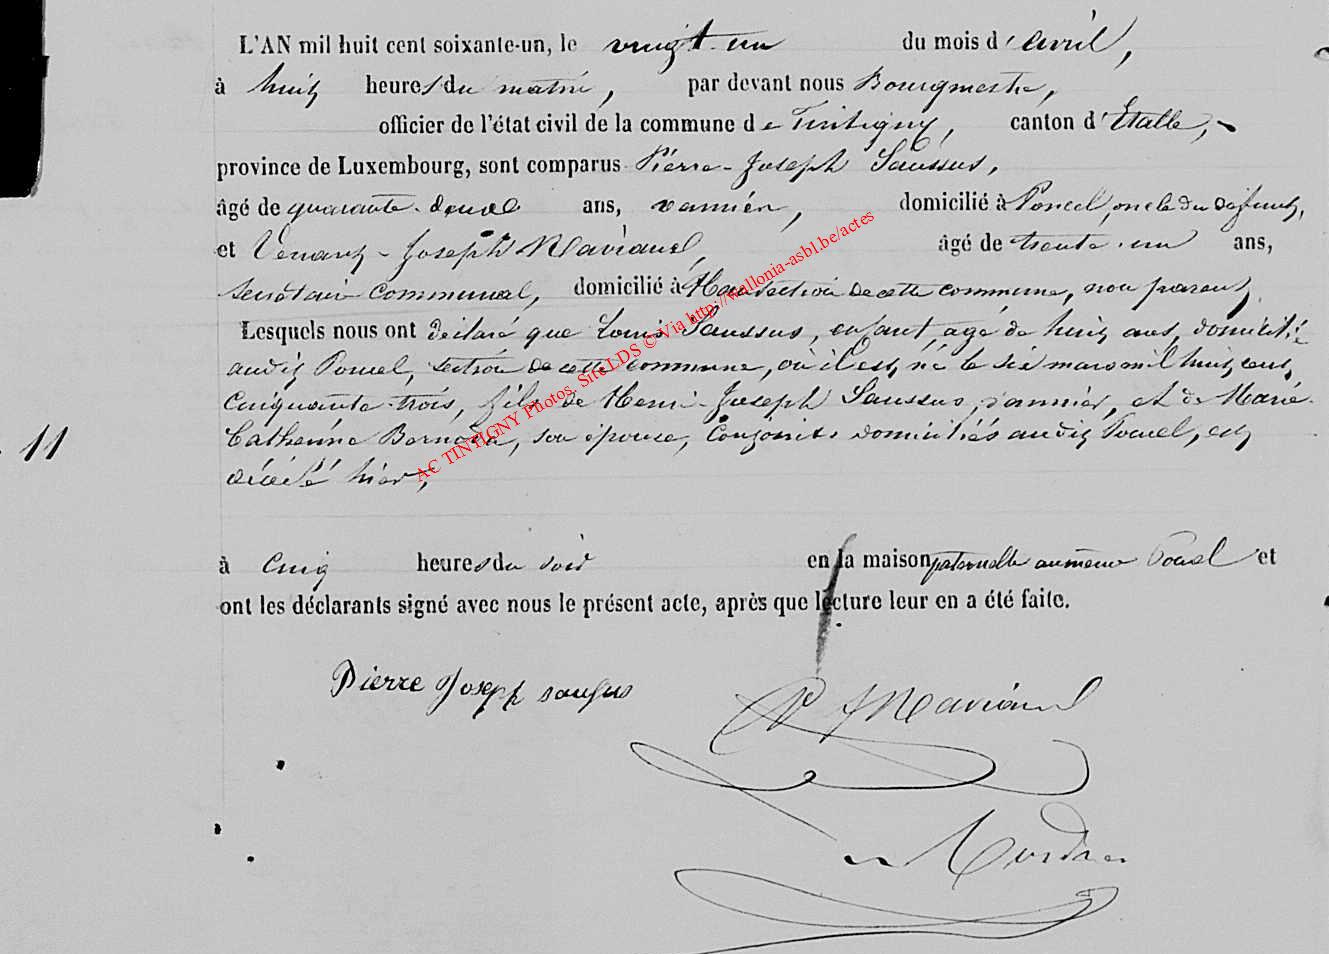 L'AN mil huit cent soixante-un, le vingt-un du mois d'avril,
à huit heures du matin, par devant nous Bourgmestre,
officier de l'état civil de la commune de Tintigny, canton d'Etalle,
province de Luxembourg, sont comparus Pierre-Joseph Saussus,
âgé de quarante-douze ans, vannier, domicilié à Poncel, oncle du défunt,
et Venant-Joseph Maviauel, âgé de trente-un ans,
secrétaire communal, domicilié à Han section de cette commune, non parent,
Lesquels nous ont déclaré que Louis Saussus, enfant, agé de huit ans, domicilié
audit Poncel, section de cette commune, où il est né le six mars mil huit cent
cinquante-trois, fils de Henri-Joseph Saussus, vannier, et de Marie-
Catherine son épouse, conjoints domiciliés audit Poncel, est
11
décédé hier,
à cinq heures du soir en la maison paternelle au même Poncel et
ont les déclarants signé avec nous le présent acte, après que lecture leur en a été faite.
Pierre Joseph sausus
AC TINTIGNY Photos, Site LDS © Via http://wallonia-asbl.be/actes